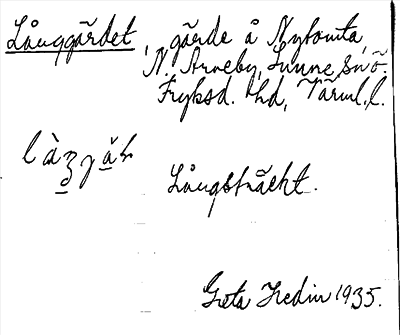 Långgärdet, gärde å Nytomta,
N. Arneby, Sunne sn ö.
Fryksd. hd, Värml. l.
Långsträckt.
Greta Hedin 1935.